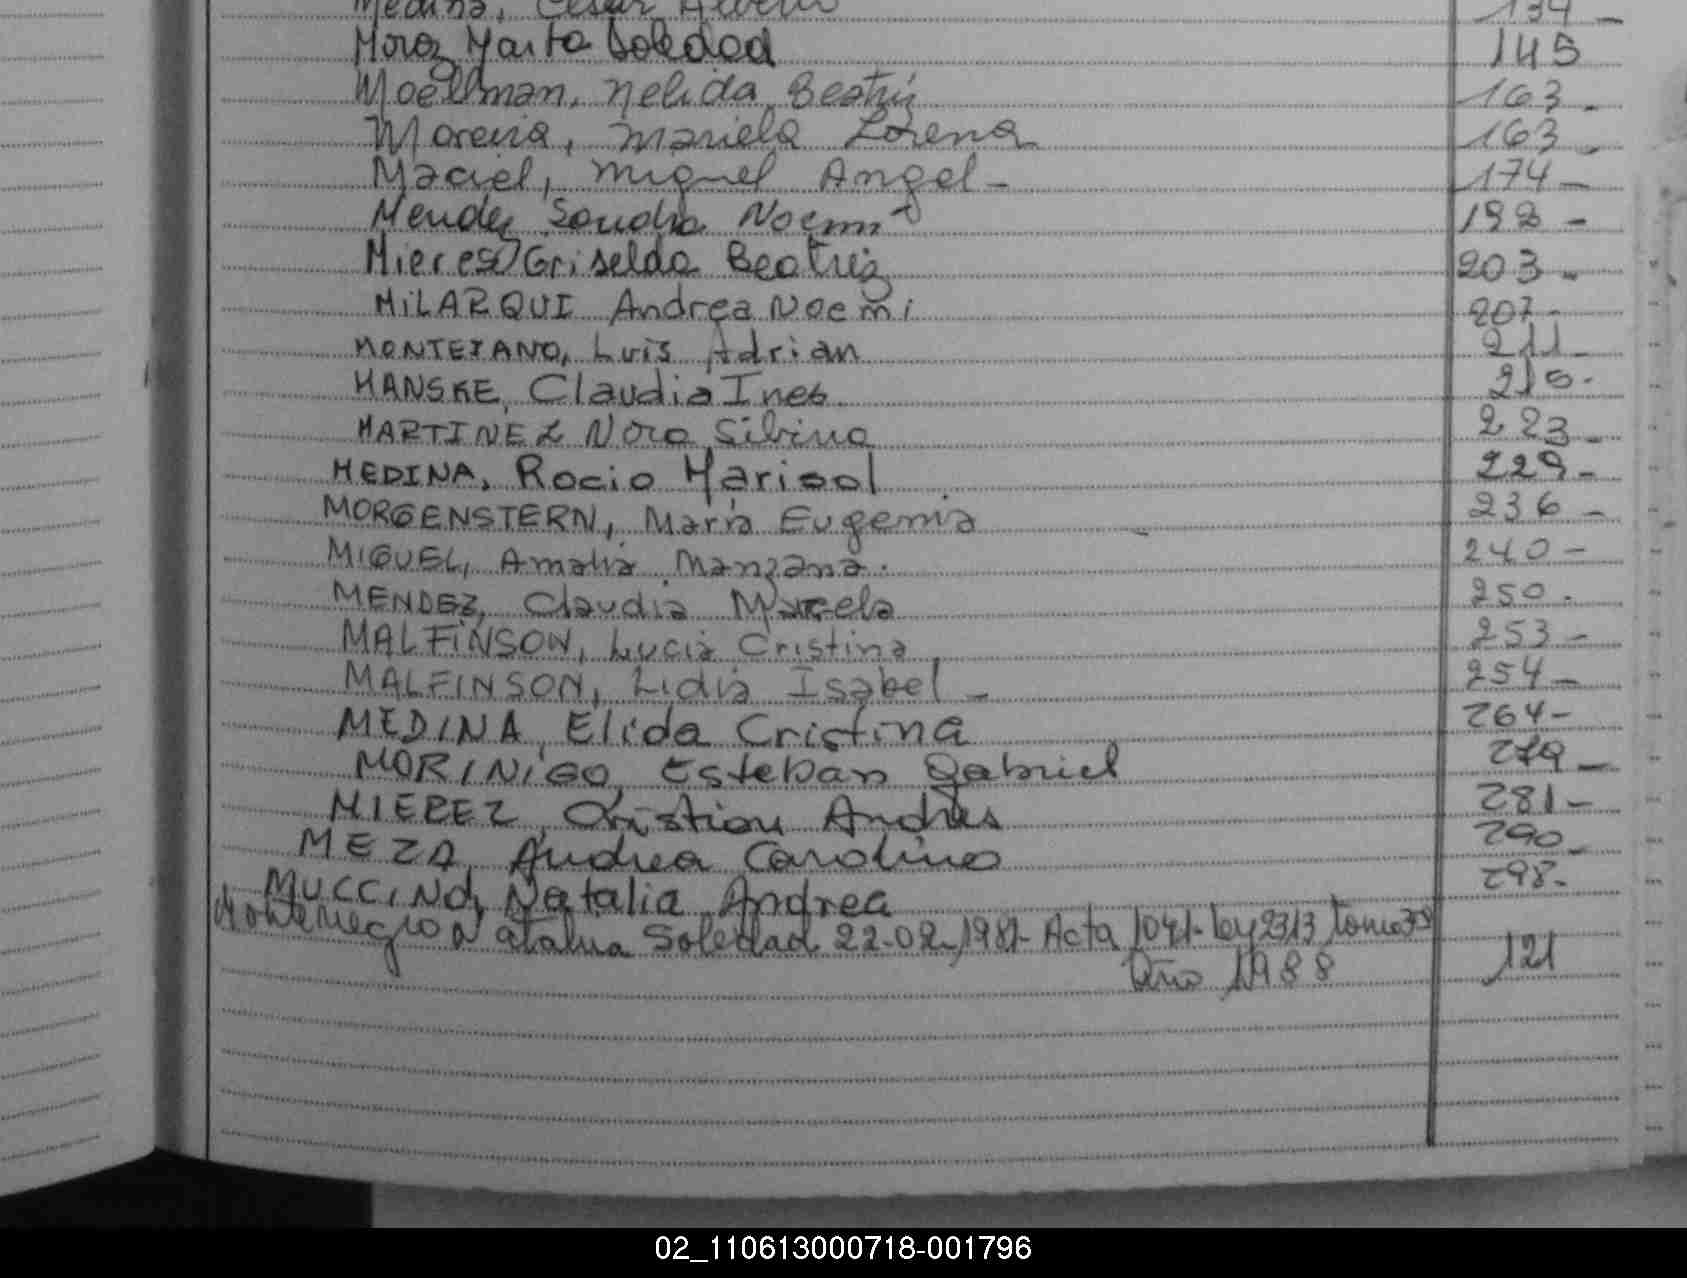 Medina, Cesar Alberto 134 -
Mora Marta Soledad 145
Moellman, Nelida Beatriz 163 -
Moreira, Mariela Lorena 163 -
Maciel, Miguel Angel - 174 -
Mendez Sandra Noemi 198 -
Mieres Griselda Beatriz 203 -
MILARQUI Andrea Noemi 207 -
MONTEZANO, Luis Adrian 211 -
MANSKE, Claudia Ines 215 -
MARTINEZ Nora Silvina 223 -
MEDINA, Rocio Marisol 229 -
MORGENSTERN, Maria Eugenia 236 -
MIGUEL, Amalia Manzana. 240 -
MENDEZ, Claudia Marcela 250 -
MALFINSON, Lucia Cristina 253 -
MALFINSON, Lidia Isabel - 254 -
MEDINA, Elida Cristina 264 -
MORINIGO, Esteban Gabriel 279 -
MIEREZ, Cristian Andres 281 -
MEZA, Andrea Carolina 290 -
MUCCINO, Natalia Andrea 298 -
Montenegro Natalia Soledad 22-02-1981- Acta 1041- ley 2313 tomo
Año 1988 121
02_110613000718-001796